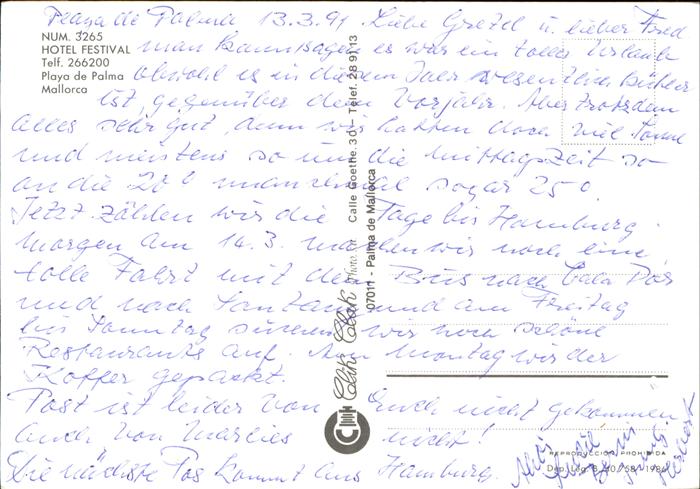 Playa de Palma 13.3.91. Liebe Gretel u. lieber Fred
NUM. 3265
HOTEL FESTIVAL
Telf. 266200
Playa de Palma
Mallorca
man kann sagen es war ein toller Urlaub
obwohl es in diesem Jaer wesentlich kühler
ist, gegenüber dem Vorjahr. Aber trotzdem
alles sehr gut, denn wir hatten doch viel Sonne
und meistens so um die Mittagszeit so
an die 20° manchmal sogar 25°.
Jetzt zählen wir die Tage bis Hamburg.
Morgen am 14.3. machen wir noch eine
tolle Fahrt mit dem Bus nach Cala
und nach und am Freitag
bis Sonntag wir noch schöne
Restaurants auf. Am Montag wird der
Koffer gepackt.
Post ist leider von Euch nicht gekommen
auch von Marlies nicht!
Die nächste Pos kommt aus Hamburg.
Herbert
Calle Goethe, 30 – Telef. 28 91 13
07011 - Palma de Mallorca
Click
REPRODUCCION PROHIBIDA
Dep. Leg. B.